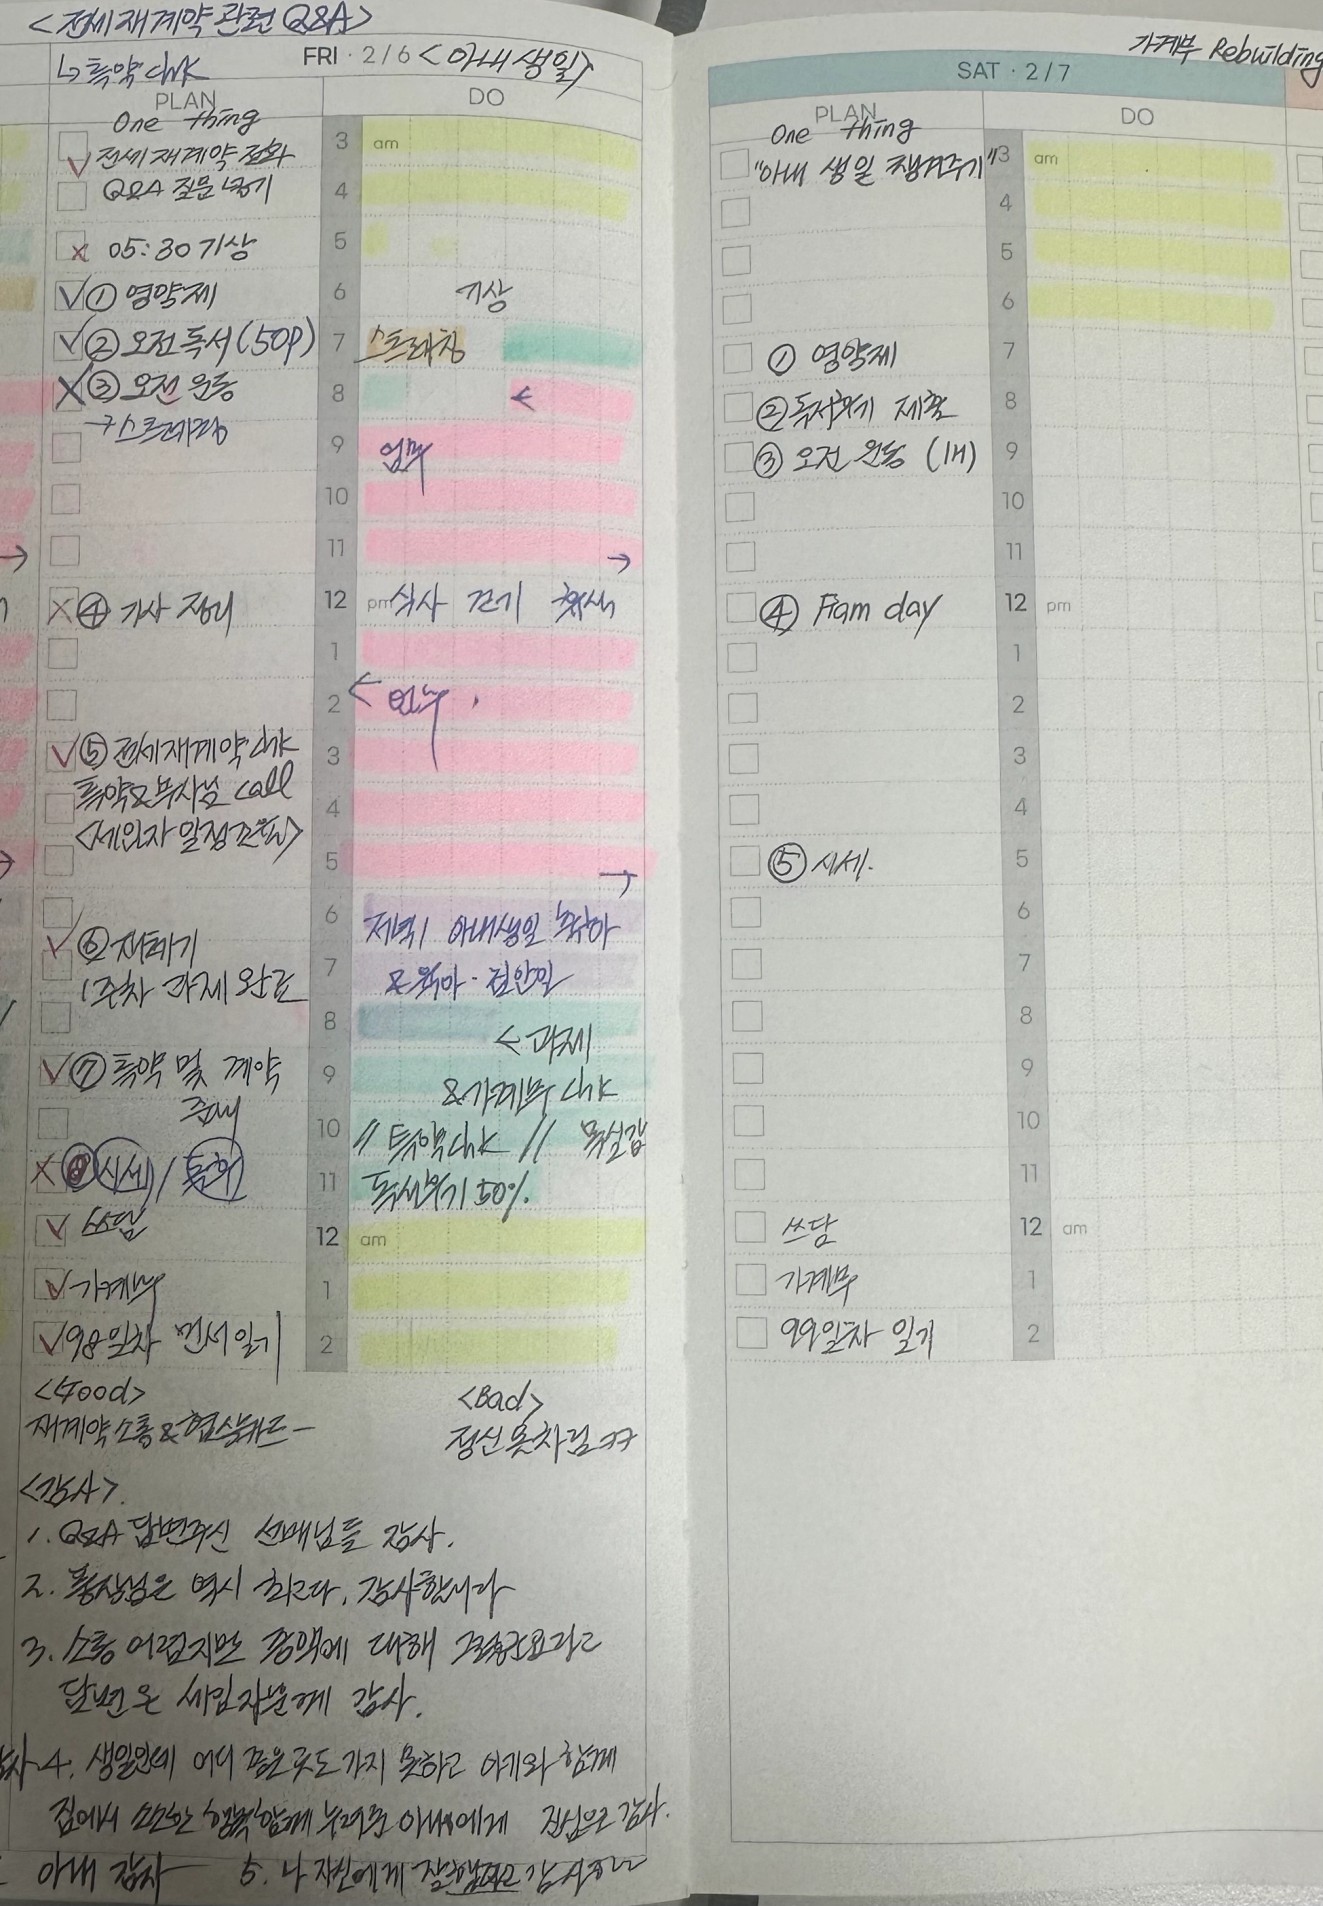 <전세 재계약 관련 Q&A>
↳ 특약 chk
FRI · 2/6 <아내 생일>
PLAN
DO
One thing
전세 재계약 전화
Q&A 질문 넣기
05:30 기상
① 영양제
② 오전 독서 (50P)
③ 오전 운동
→ 스트레칭
④ 기상 정리
⑤ 전세 재계약 chk
특약 & 부사님 call
<세입자 일정 조율>
⑥ 재테기
1주차 과제 완료
⑦ 특약 및 계약
준비
⑧ 시세 / 독후
쓰담
가계부
98일차 먼서 일기
3 am
4
5
6 기상
7 스트레칭
8 ←
9 업무
10
11 →
12 pm 식사 걷기
1
2 ← 업무
3
4
5 →
6 저녁 / 아내 생일 축하
7 & 육아 · 집안일
8 ← 과제
9 & 가계부 chk
10 // 특약 chk // 목실감
11 독서후기 50%
12 am
1
2
<Good>
재계약 소통 &
<Bad>
정신 못차림 ㅋㅋ
<감사>
1. Q&A 답변주신 선배님들 감사.
2. 튜장님은 역시 최고다. 감사합니다
3. 소통 어렵지만 증액에 대해
답변 온 세입자분께 감사.
4. 생일인데 어디 좋은 곳도 가지 못하고 아기와 함께
집에서 소소한 행복 함께 누려준 아내에게 진심으로 감사.
아내 감사
5. 나 자신에게 잘했다고
가계부 Rebuilding
SAT · 2/7
PLAN
DO
One thing
"아내 생일 챙겨주기"
① 영양제
② 독서후기 제출
③ 오전 운동 (1H)
④ Fiam day
⑤ 시세.
쓰담
가계부
99일차 일기
3 am
4
5
6
7
8
9
10
11
12 pm
1
2
3
4
5
6
7
8
9
10
11
12 am
1
2